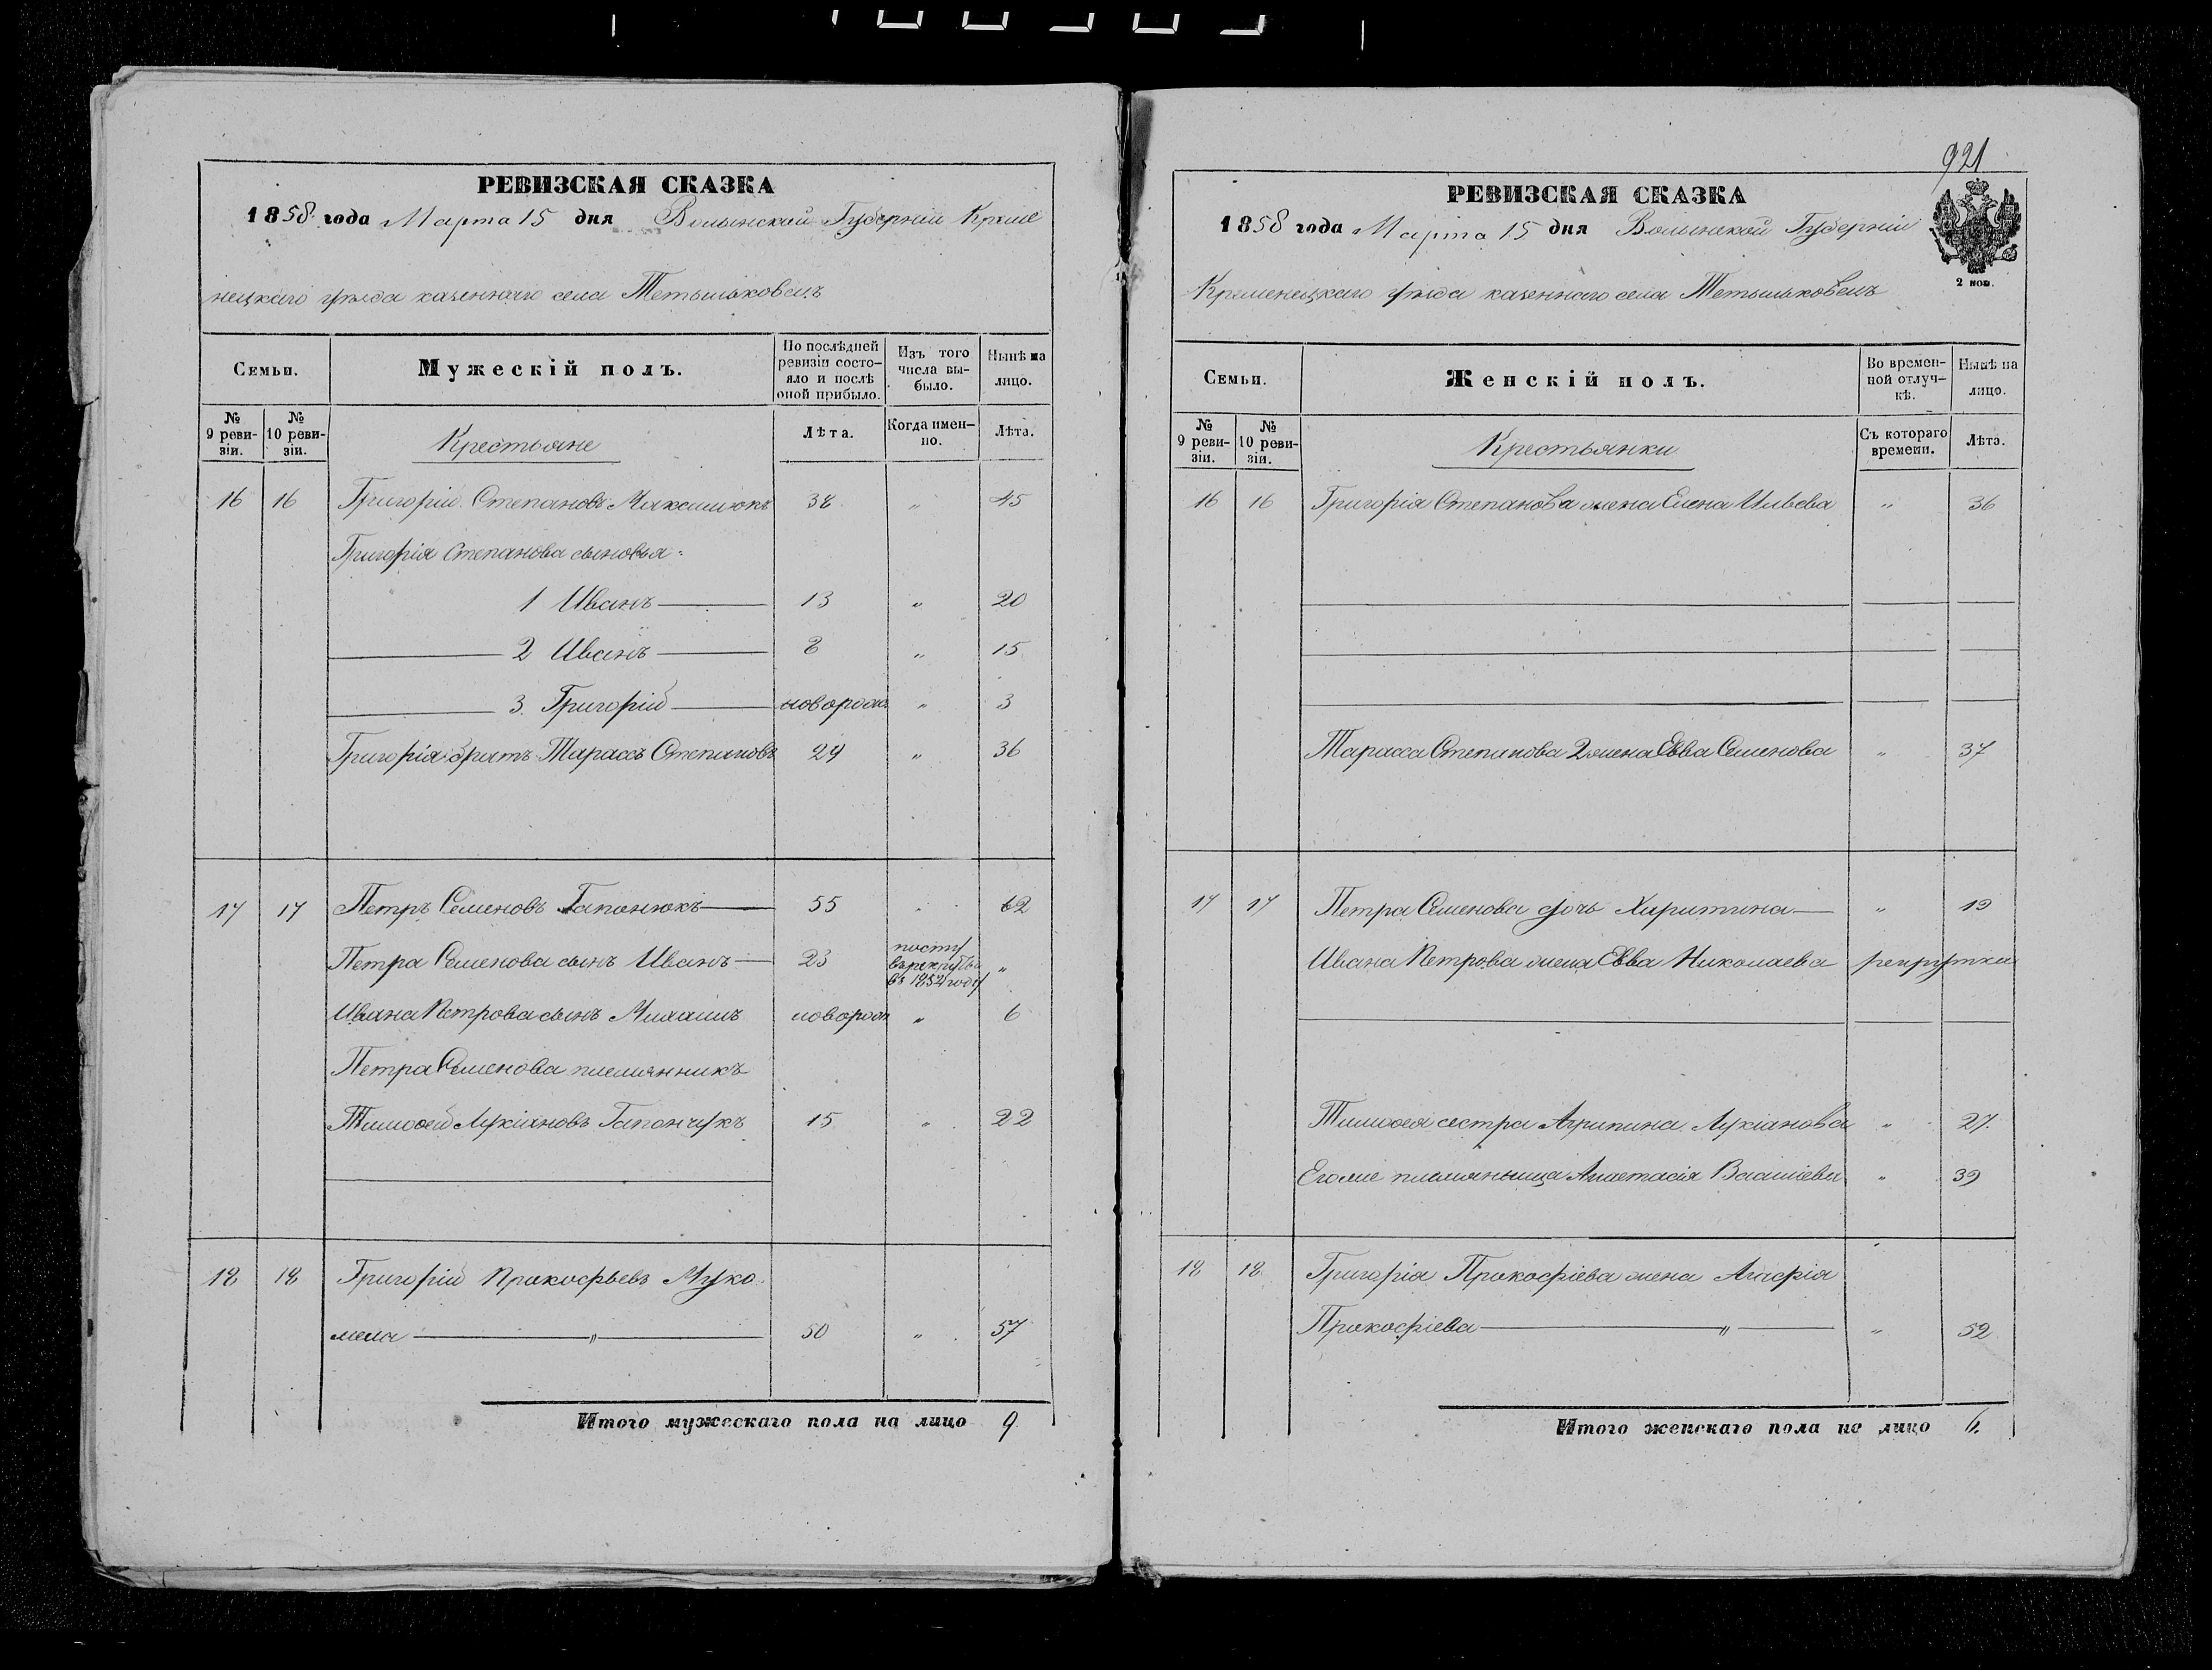 921
РЕВИЗСКАЯ СКАЗКА
1858 года Марта 15 дня Волынской Губерніи Креме
нецкаго уезда казеннаго села Тетыльковецъ
Семьи.
Мужескій полъ.
По послѣдней ревизіи состо-
яло и послѣ
оной прибыло.
Изъ того
числа вы-
было.
Нынѣ на
лицо.
№ 9 реви-
зіи.
№ 10 реви-
зіи.
Крестьяне
Лѣта.
Когда имен-
но.
Лѣта.
16 16 Григорій Степановъ Максимюкъ 38 " 45
Григорія Степанова сыновья:
1 Иванъ 13 " 20
2 Иванъ 8 " 15
3. Григорій новорожд " 3
Григорія братъ Тарасъ Степановъ 29 " 36
17 17 Петръ Семеновъ Гапонюкъ 55 62
Петра Семенова сынъ Иванъ 23 " 
поступ
въ рекруты
въ 1852 году
Ивана Петрова сынъ Михаилъ новорож " 6
Петра Семенова племянникъ
Тимофей Лукіановъ Гапончукъ 15 " 22
18 18 Григорій Прокофьевъ Муко
мела " 50 " 57
Итого мужескаго пола на лицо 9
РЕВИЗСКАЯ СКАЗКА
1858 года Марта 15 дня Волынской Губерніи
Кременецкаго уезда казеннаго села Тетыльковецъ
2 коп.
Семьи.
Женскій полъ.
Во времен-
ной отлуч-
кѣ.
Нынѣ на
лицо.
№ 9 реви-
зіи.
№ 10 реви-
зіи.
Крестьянки
Съ котораго
времени.
Лѣта.
16 16 Григорія Степанова жена Елена Ильева " 36
Тарасса Степанова 2 жена Евва Семенова " 37
17 17 Петра Семенова дочь Харитина " 19
Ивана Петрова жена Евва Николаева рекрутка
Тимофея сестра Агрипина Лукіанова " 27.
Егоже племянница Анастасія Василіева " 39
18 18 Григорія Прокофіева жена Агафія
Прокофіева " " 52
Итого женскаго пола на лицо 6.